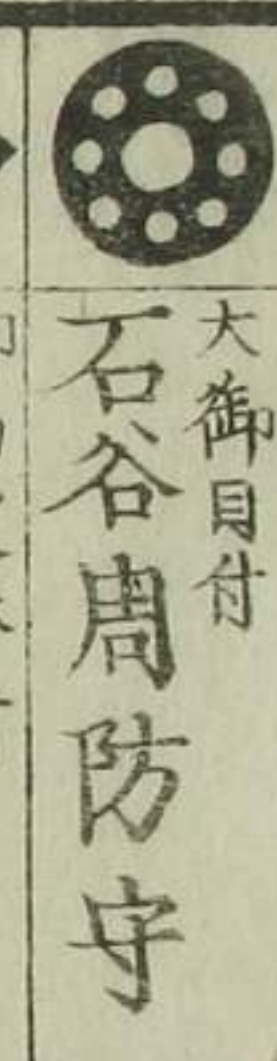 大御目付
石谷周防守